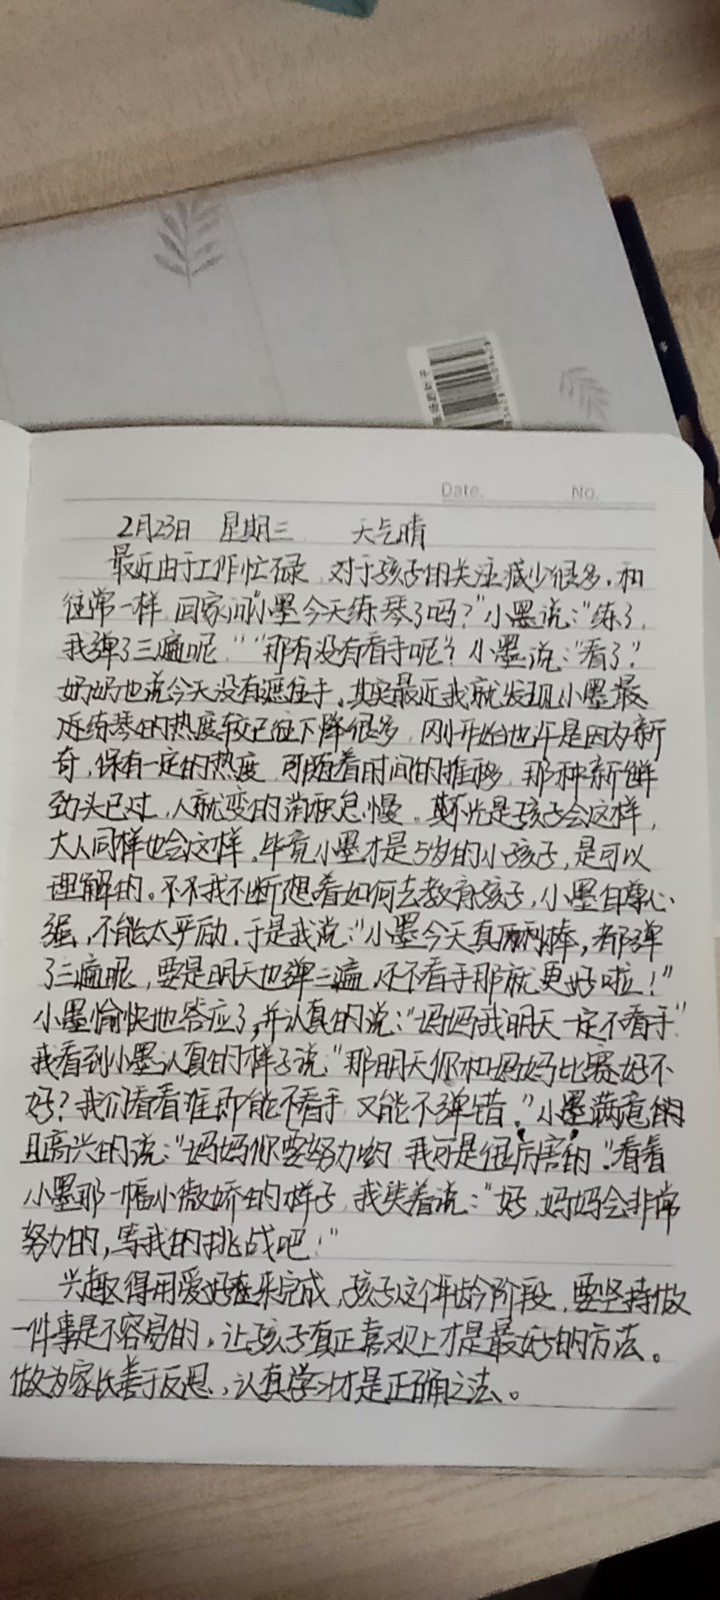 Date. No.
2月23日 星期三 天气晴
最近由于工作忙碌，对于孩子的关注减少很多，和
往常一样，回家问“小墨今天练琴了吗？”小墨说：“练了，
我弹了三遍呢。”“那有没有看手呢？小墨说：“看了”
奶奶也说今天没有遮住手。其实最近我就发现小墨最
近练琴的热度较已往下降很多，刚开始也许是因为新
奇，保有一定的热度，可随着时间的推移，那种新鲜
劲头已过，人就变的消积怠慢。其不光是孩子会这样，
大人同样也会这样。毕竟小墨才是5岁的小孩子，是可以
理解的。不不我不断想着如何去教育孩子，小墨自尊心
强，不能太严励，于是我说：“小墨今天真棒，都弹
了三遍呢，要是明天也弹三遍，还不看手那就更好啦！”
小墨愉快地答应了，并认真的说：“妈妈我明天一定不看手”
我看到小墨认真的样子说“那明天你和妈妈比赛好不
好？我们看看谁即能不看手，又能不弹错。”小墨满意的
且高兴的说：“妈妈你要努力哟，我可是很厉害的”看着
小墨那一幅小傲娇的样子，我笑着说：“好，妈妈会非常
努力的，等我的挑战吧！”
兴趣得用爱好来完成，孩子这个年龄阶段，要坚持做
一件事是不容易的，让孩子真正喜欢上才是最好的方法。
做为家长善于反思，认真学习才是正确之法。